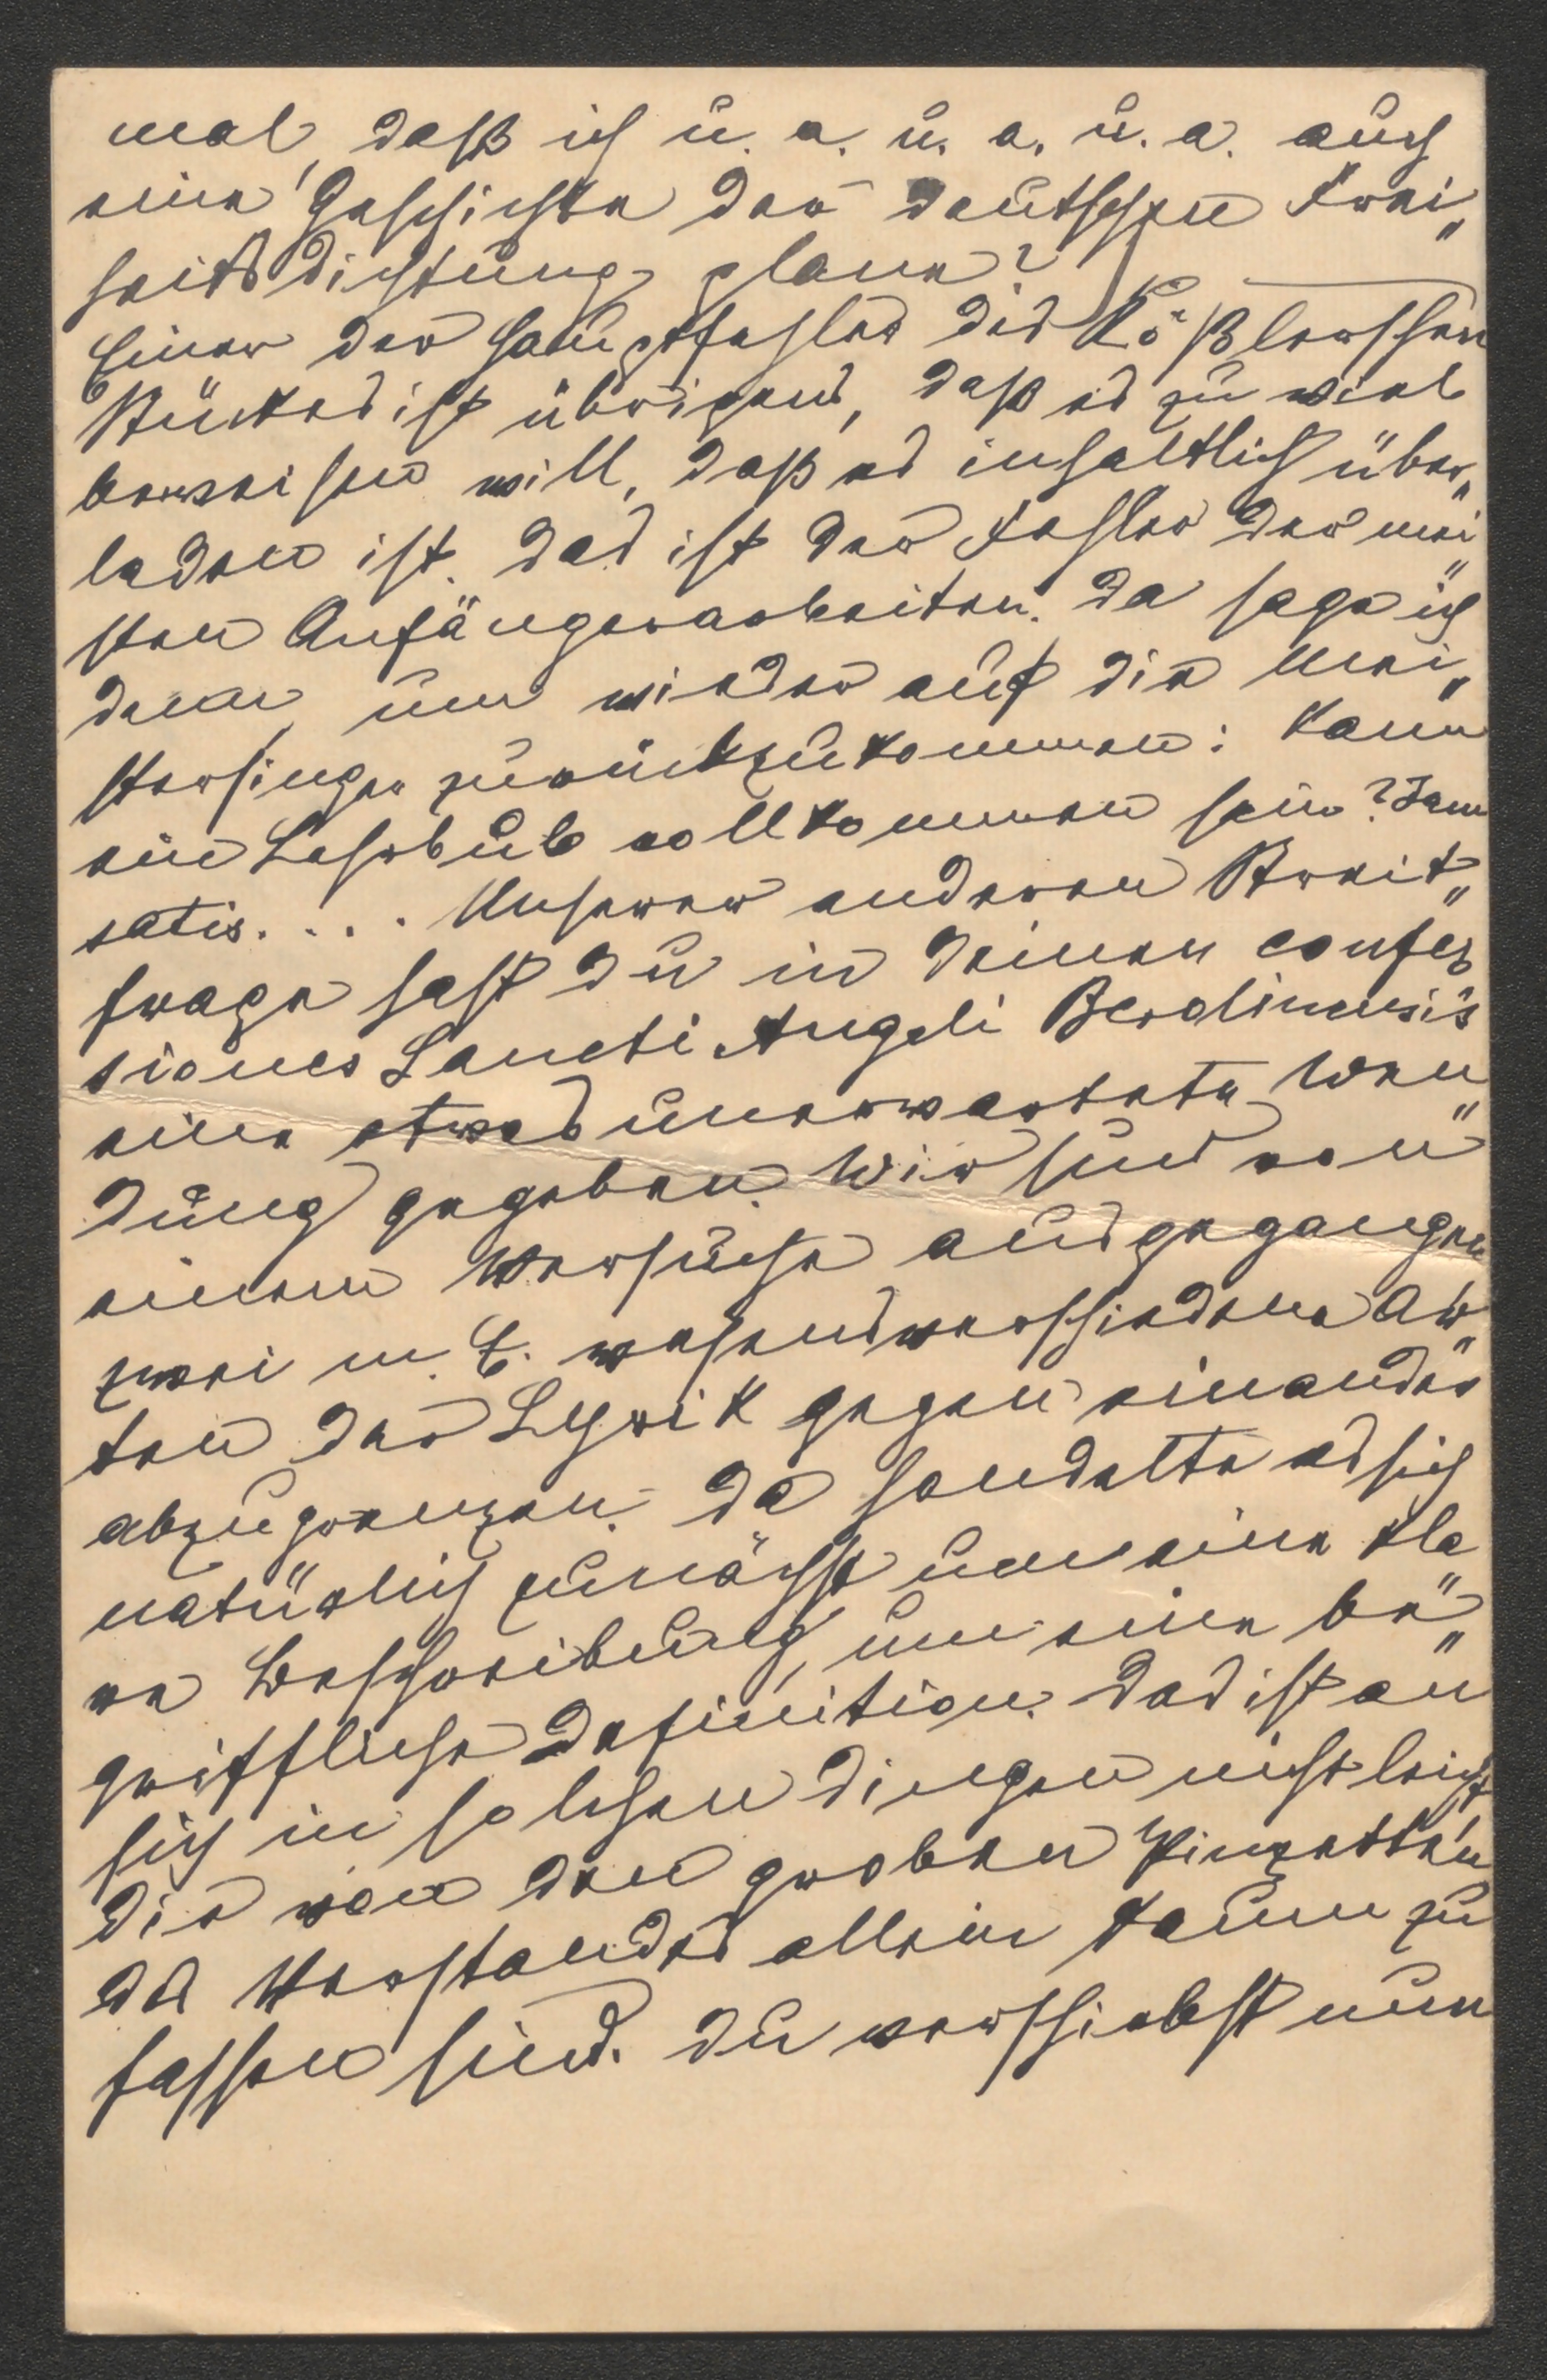 mal, daß ich u. a. u. a. u. a. auch
eine Geschichte der deutschen Frei„
heitsdichtung plane?
Einer der Hauptfehler des Kößlerschen
Stückes ist übrigens, daß es zu viel
beweisen will, daß es inhaltlich über„
laden ist. Das ist der Fehler der mei„
sten Anfängerarbeiten. Da sage ich
denn, um wieder auf die Mei„
stersinger zurückzukommen: Kann
ein Lehrbub vollkommen sein? Jam
satis. . . . Unserer anderen Streit„
frage hast Du in Deinen confes
siones Sancti Angeli Berolinensis
eine etwas unerwartete Wen„
dung gegeben. Wir sind von
einem Versuche ausgegangen
zwei m. E. wesensverschiedene Ar„
ten der Lyrik gegen einander
abzugrenzen. Da handelte es sich
natürlich zunächst um eine kla„
re Beschreibung, um eine be„
griffliche Definition. Das ist an
sich in solchen Dingen nicht leicht,
die von den groben Pinzetten
des Verstandes allein kaum zu
fassen sind. Du verschiebst nun